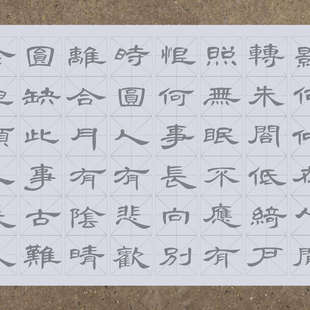 影何似在人間
轉朱閣低綺戶
照無眠不應有
恨何事長向別
時圓人有悲歡
離合月有陰晴
圓缺此事古難